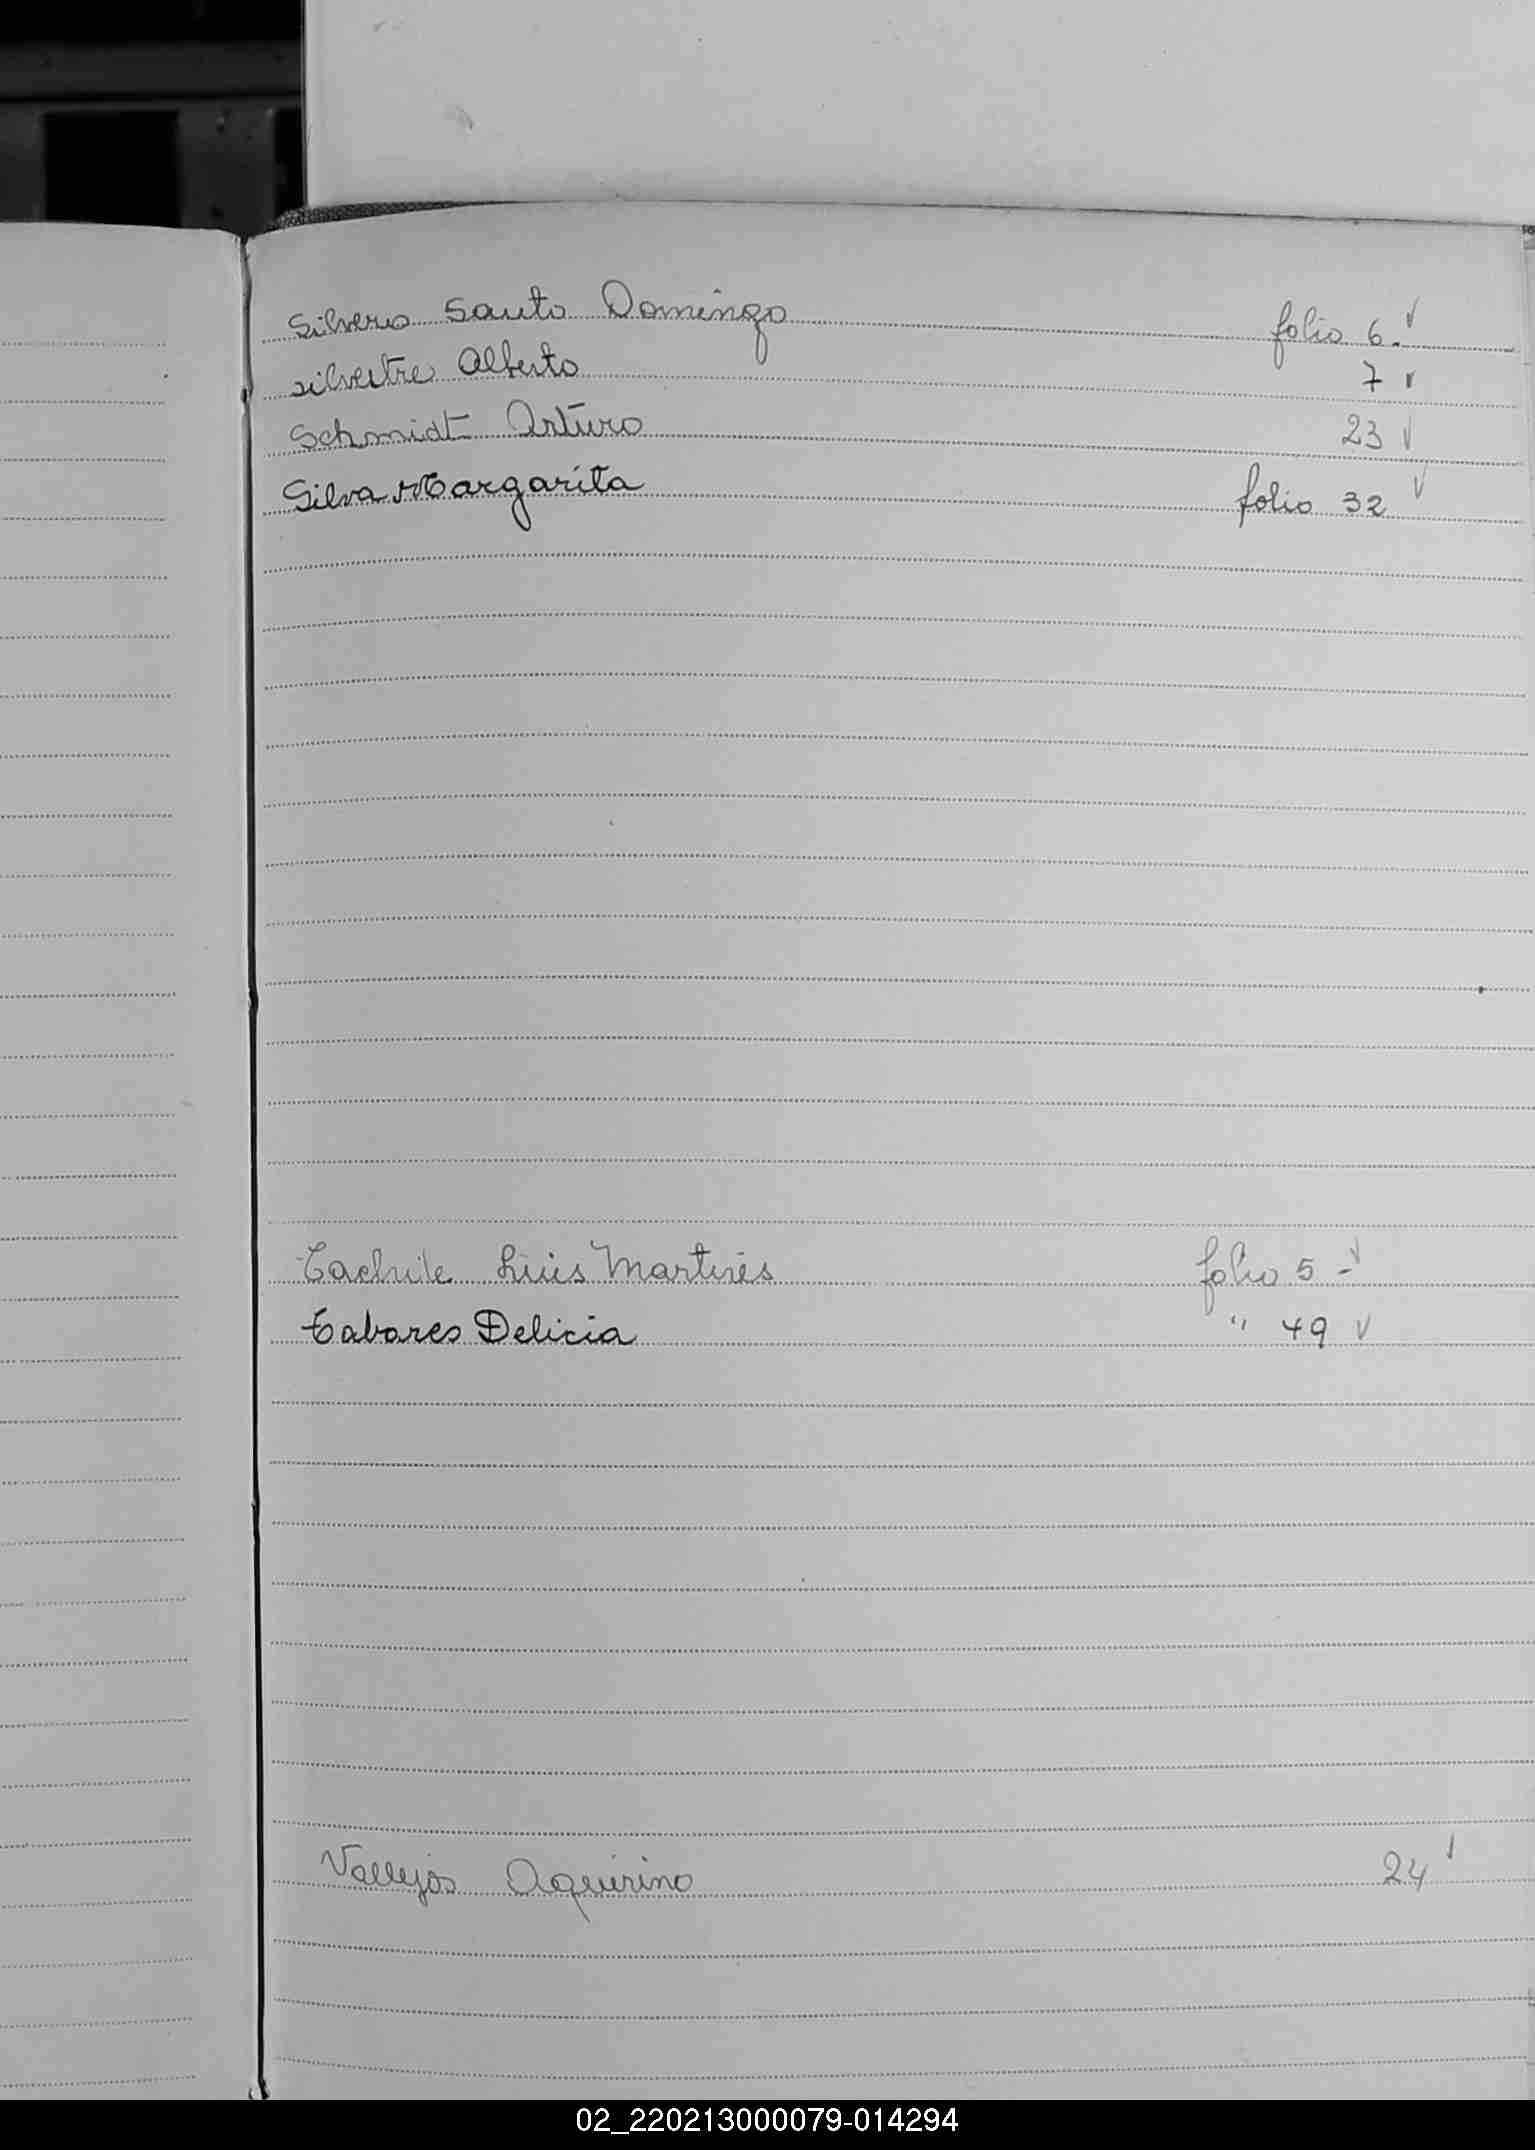 Silverio Santo Domingo folio 6. ✓
silvestre Alberto 7 ✓
Schmidt Arturo 23 ✓
Silva Margarita folio 32 ✓
Luis Martires folio 5 - ✓
Tabares Delicia " 49 ✓
Vallejos Aquirino 24 ✓
02_220213000079-014294